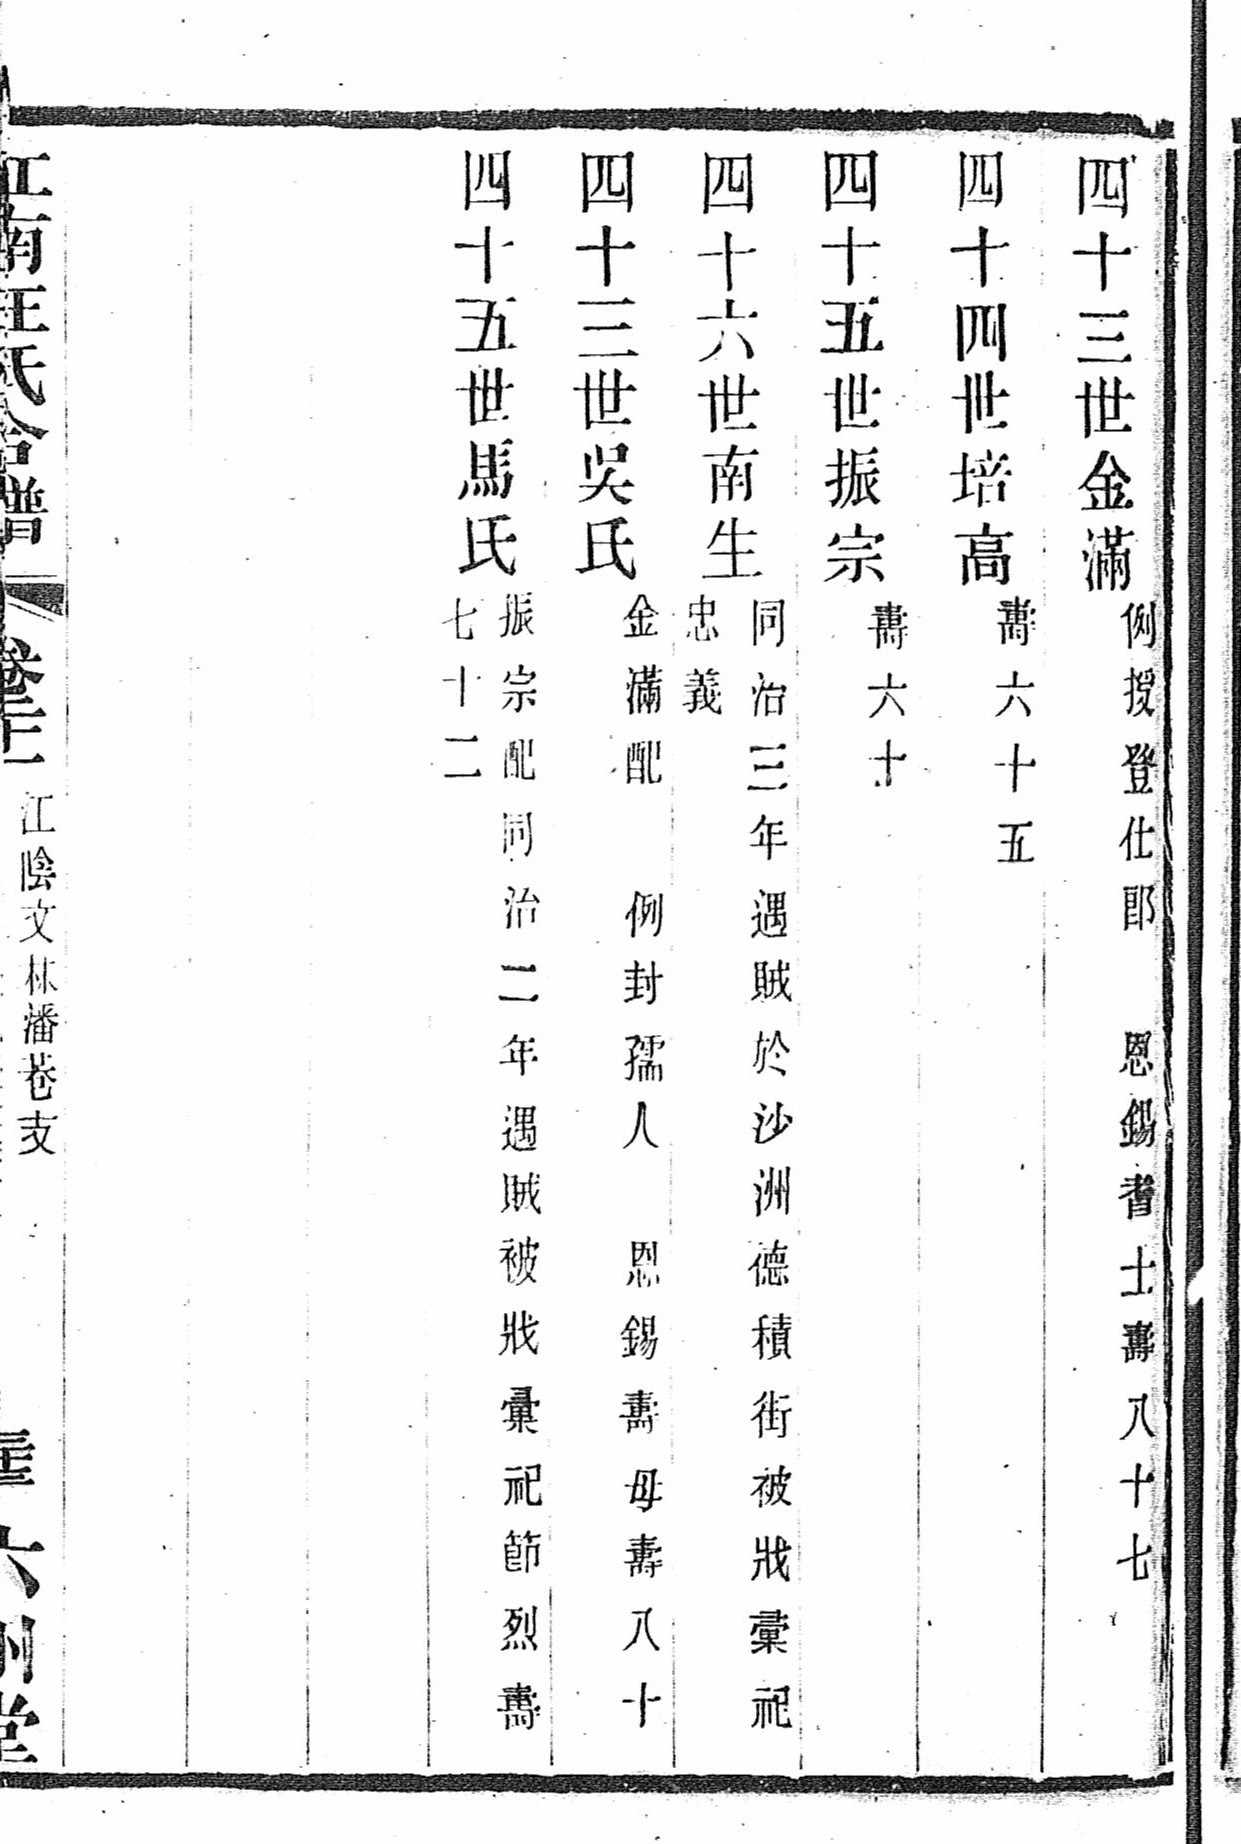 四十三世金滿 例授登仕郎 恩錫耆士壽八十七
四十四世培高 壽六十五
四十五世振宗 壽六十
四十六世南生 同治三年遇賊於沙洲德積街被戕彙祀
忠義
四十三世吳氏 金滿配 例封孺人 恩錫壽母壽八十
四十五世馬氏 振宗配同治二年遇賊被戕彙祀節烈壽
七十二
江南汪氏合譜 江陰文林潘巷支 六州堂